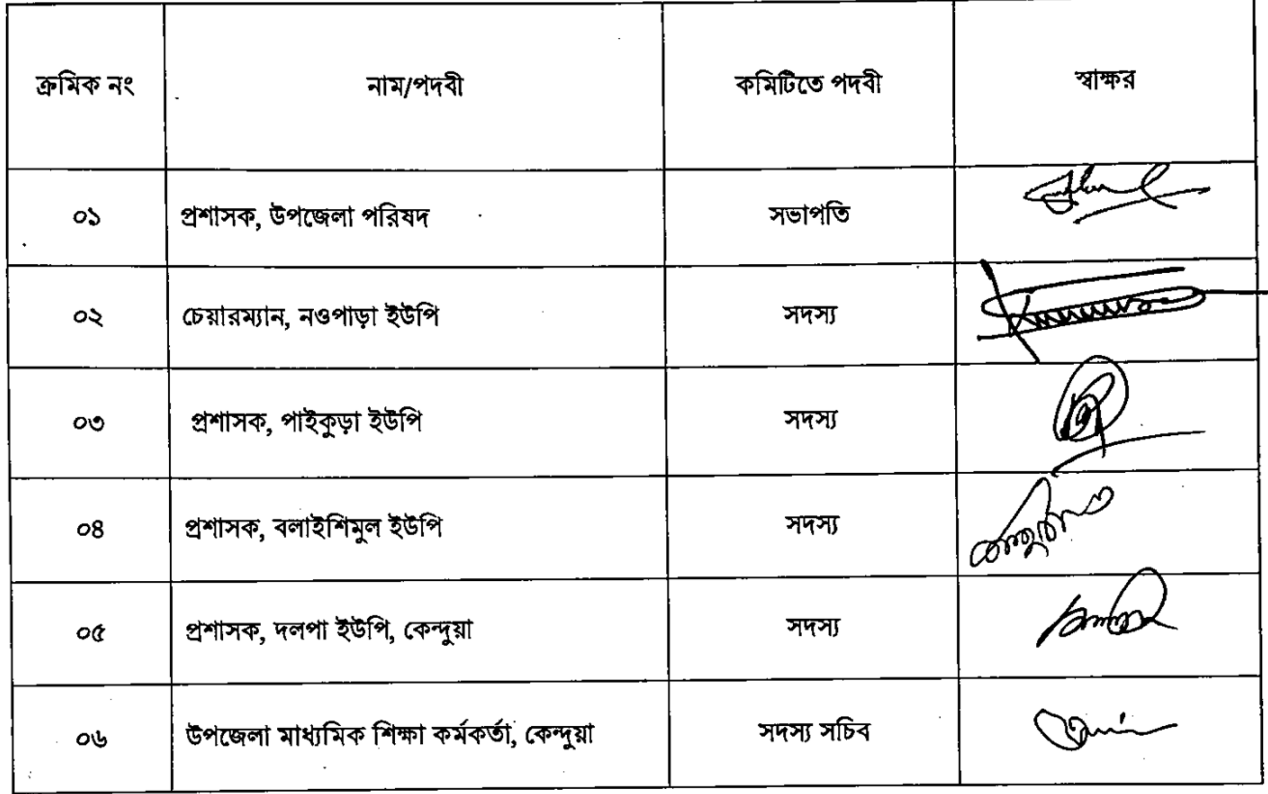 ক্রমিক নং নাম/পদবী কমিটিতে পদবী স্বাক্ষর
০১ প্রশাসক, উপজেলা পরিষদ সভাপতি
০২ চেয়ারম্যান, নওপাড়া ইউপি সদস্য
০৩ প্রশাসক, পাইকুড়া ইউপি সদস্য
০৪ প্রশাসক, বলাইশিমুল ইউপি সদস্য
০৫ প্রশাসক, দলপা ইউপি, কেন্দুয়া সদস্য
০৬ উপজেলা মাধ্যমিক শিক্ষা কর্মকর্তা, কেন্দুয়া সদস্য সচিব